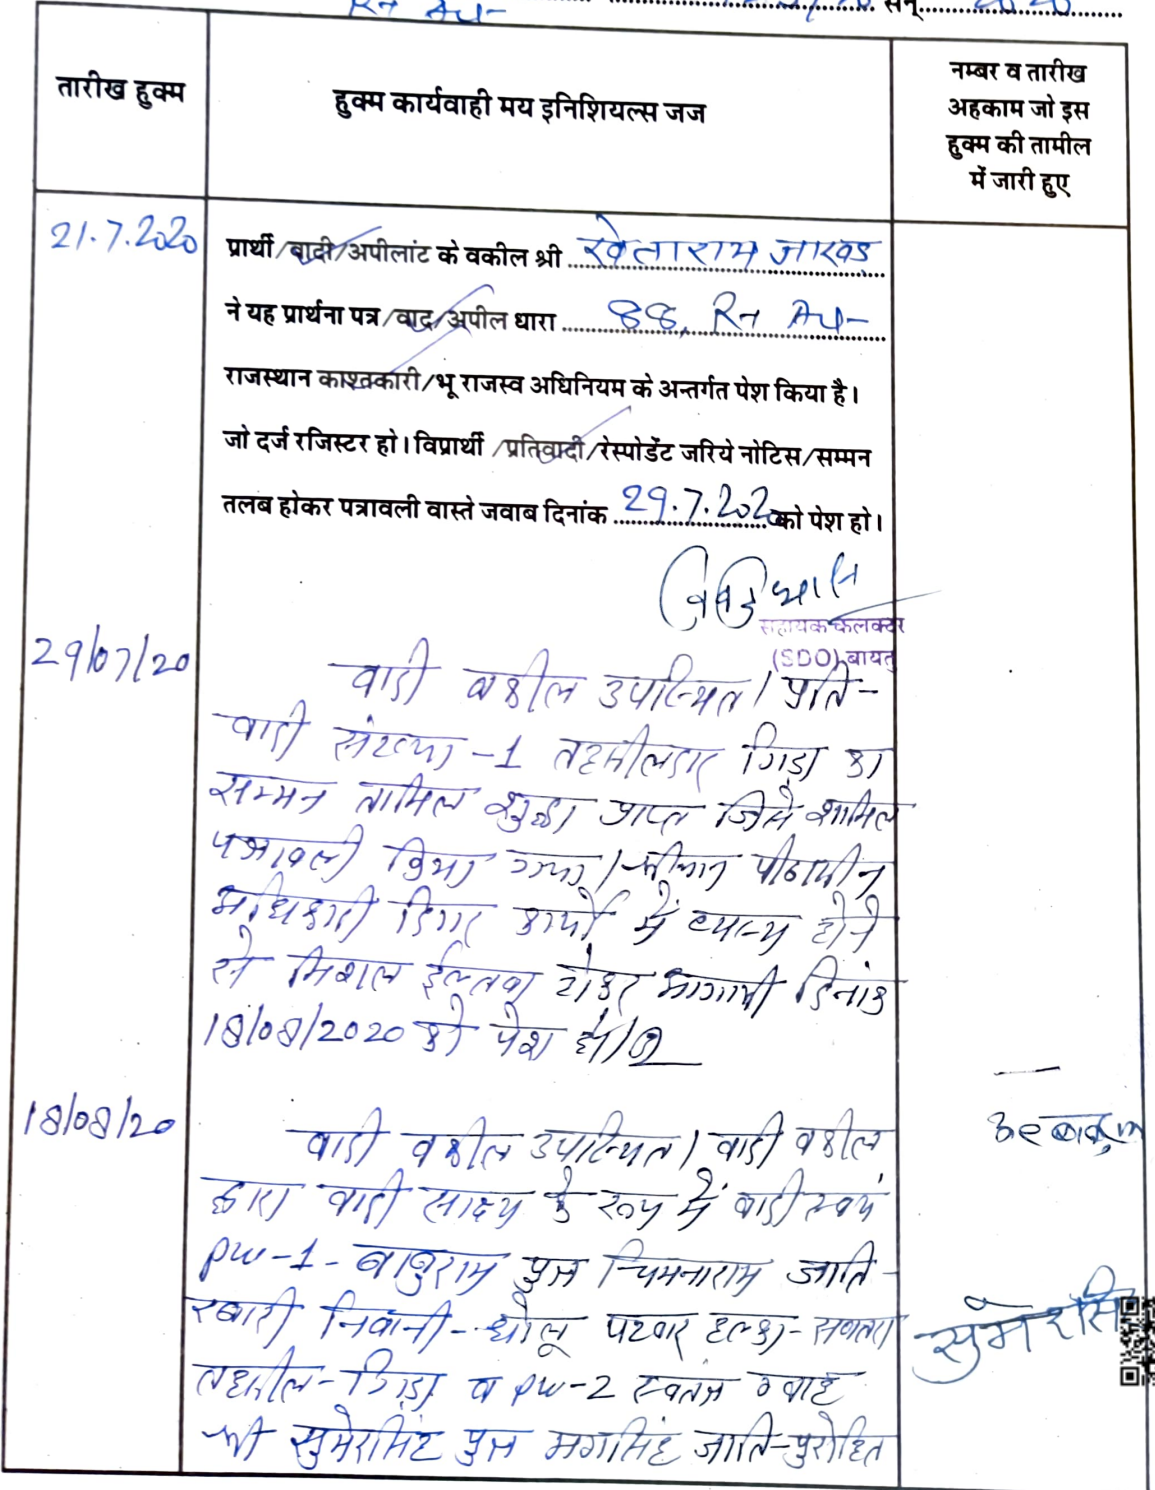 सन् 2020
तारीख हुक्म
हुक्म कार्यवाही मय इनिशियल्स जज
नम्बर व तारीख
अहकाम जो इस
हुक्म की तामील
में जारी हुए
21.7.2020
प्रार्थी/वादी/अपीलांट के वकील श्री खेताराम जाखड़
ने यह प्रार्थना पत्र/वाद/अपील धारा 88, RT Act
राजस्थान काश्तकारी/भू राजस्व अधिनियम के अन्तर्गत पेश किया है।
जो दर्ज रजिस्टर हो। विप्रार्थी/प्रतिवादी/रेस्पोडेंट जरिये नोटिस/सम्मन
तलब होकर पत्रावली वास्ते जवाब दिनांक 29.7.2020 को पेश हो।
सहायक कलक्टर
(SDO) बायतु
29/07/20
वादी वकील उपस्थित। प्रति-
वादी संख्या -1 तहसीलदार गिड़ा का
सम्मन तामिल शुदा प्राप्त जिसे शामिल
पत्रावली किया गया। श्रीमान पीठासीन
अधिकारी दिगर कार्यों में व्यस्त होने
से मिशल ईल्तवा होकर आगामी दिनांक
18/08/2020 को पेश हो।
18/08/20
वादी वकील उपस्थित। वादी वकील
द्वारा वादी साक्ष्य के रूप में वादी स्वयं
PW-1- बाबुराम पुत्र चिमनाराम जाति-
रबारी निवासी- धोलू पटवार हल्का- सणतरा
तहसील- गिड़ा व PW-2 स्वतंत्र गवाह
श्री सुमेरसिंह पुत्र मगसिंह जाति-पुरोहित
सुमेरसिं